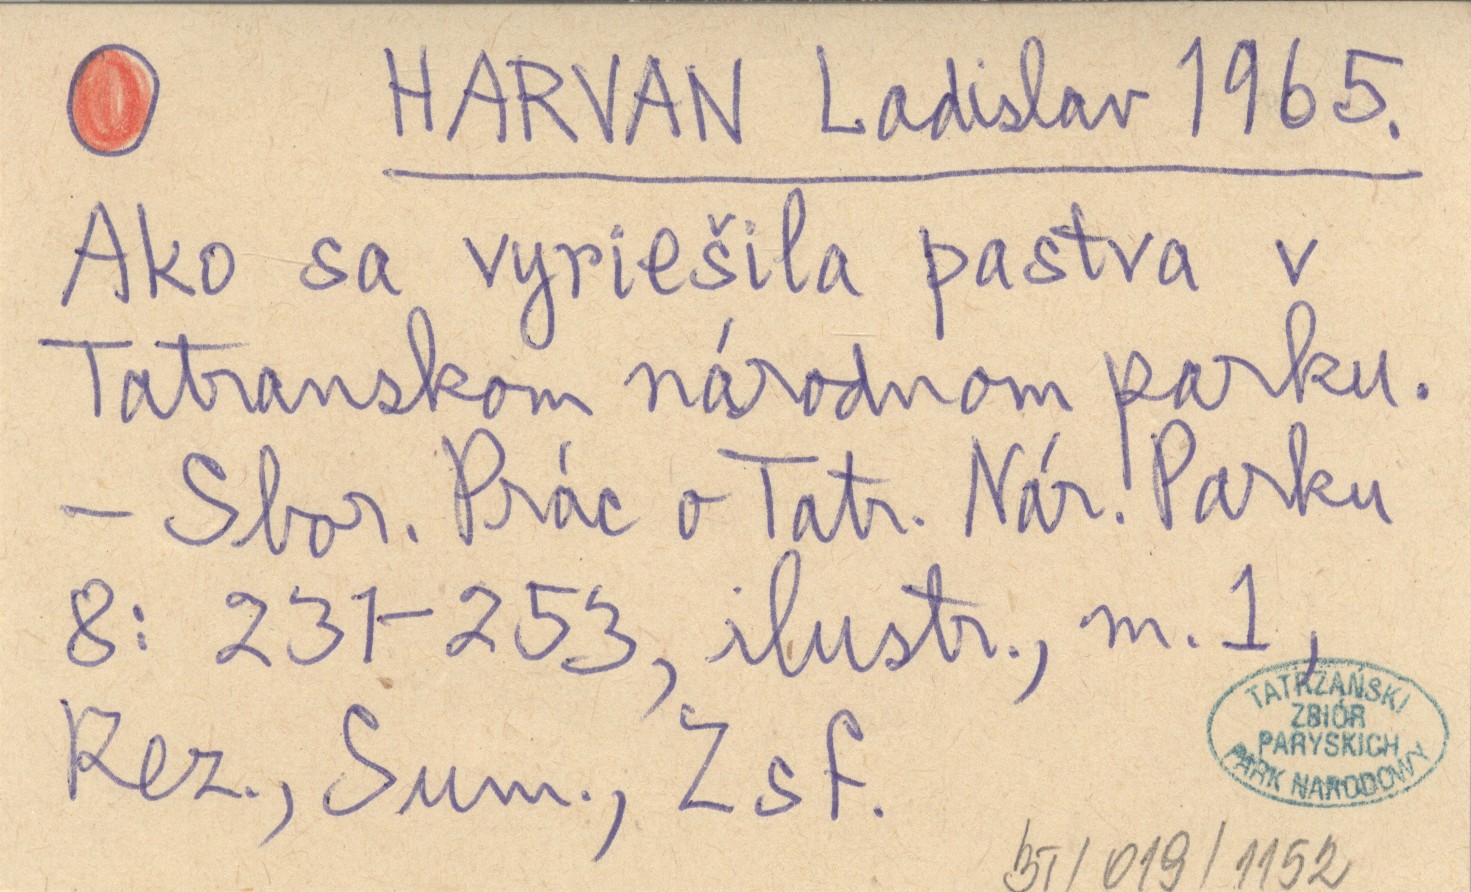 HARVAN Ladislav 1965.
Ako sa vyriešila pastva v
Tatranskom národnom parku.
– Sbor. Prác o Tatr. Nár. Parku
8: 231–253, ilustr., m. 1,
Rez., Sum., Zsf.
TATRZAŃSKI
ZBIÓR
PARYSKICH
PARK NARODOWY
/019/1152